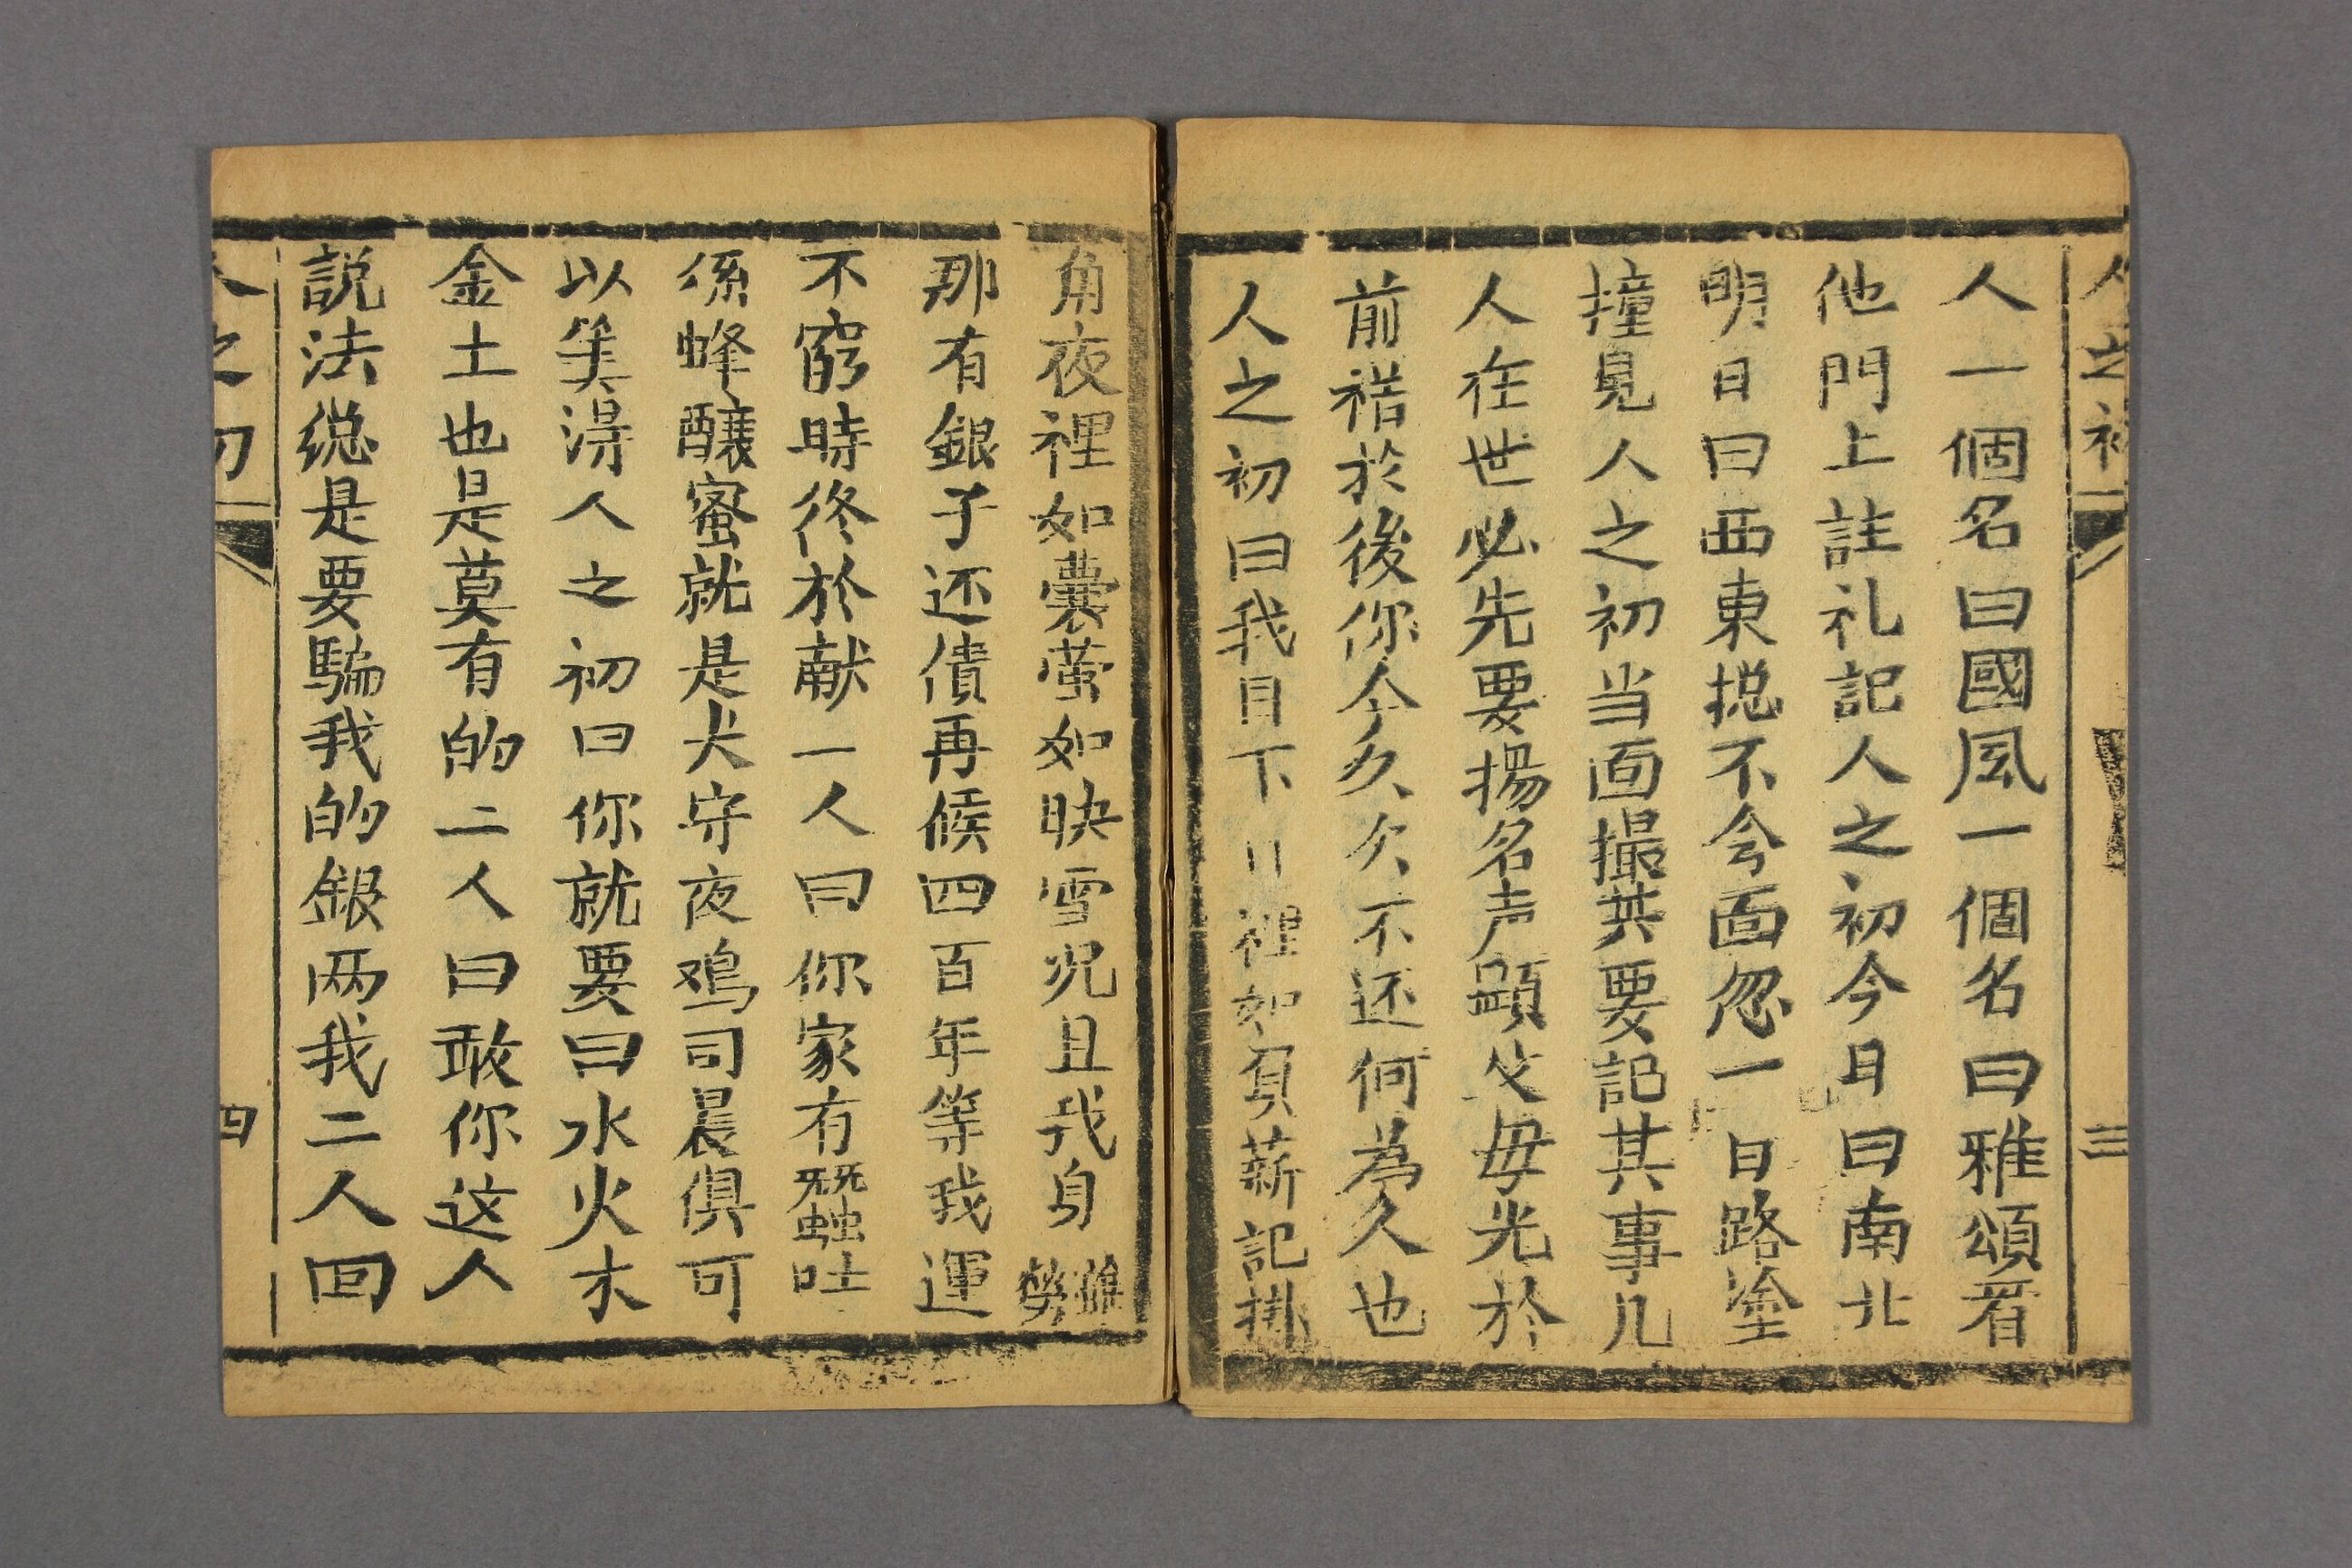 人之初 三
人一個名曰國風一個名曰雅頌看
他門上註礼記人之初今日曰南北
明日曰西東捴不会面忽一日路塗
撞見人之初当面撮共要記其事几
人在世必先要揚名声顕父毋光於
前裕於後你今久久不还何為久也
人之初曰我目下日裡如負薪記掛
角夜裡如囊萤如映雪况且我身雖勞
那有銀子还債再候四百年等我運
不窮時终於献一人曰你家有蚕吐
係蜂釀蜜就是犬守夜鸡司晨俱可
以美淂人之初曰你就要曰水火木
金土也是莫有的二人曰敢你这人
説法縂是要騙我的銀两我二人回
人之初 四